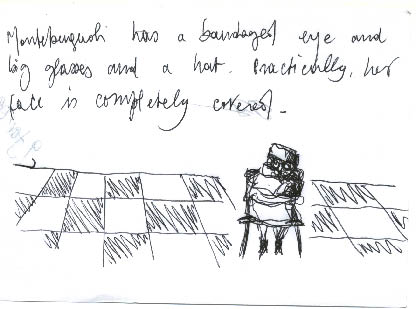 has a bandaged eye and
big glasses and a hat. Practically, her
face is completely covered.